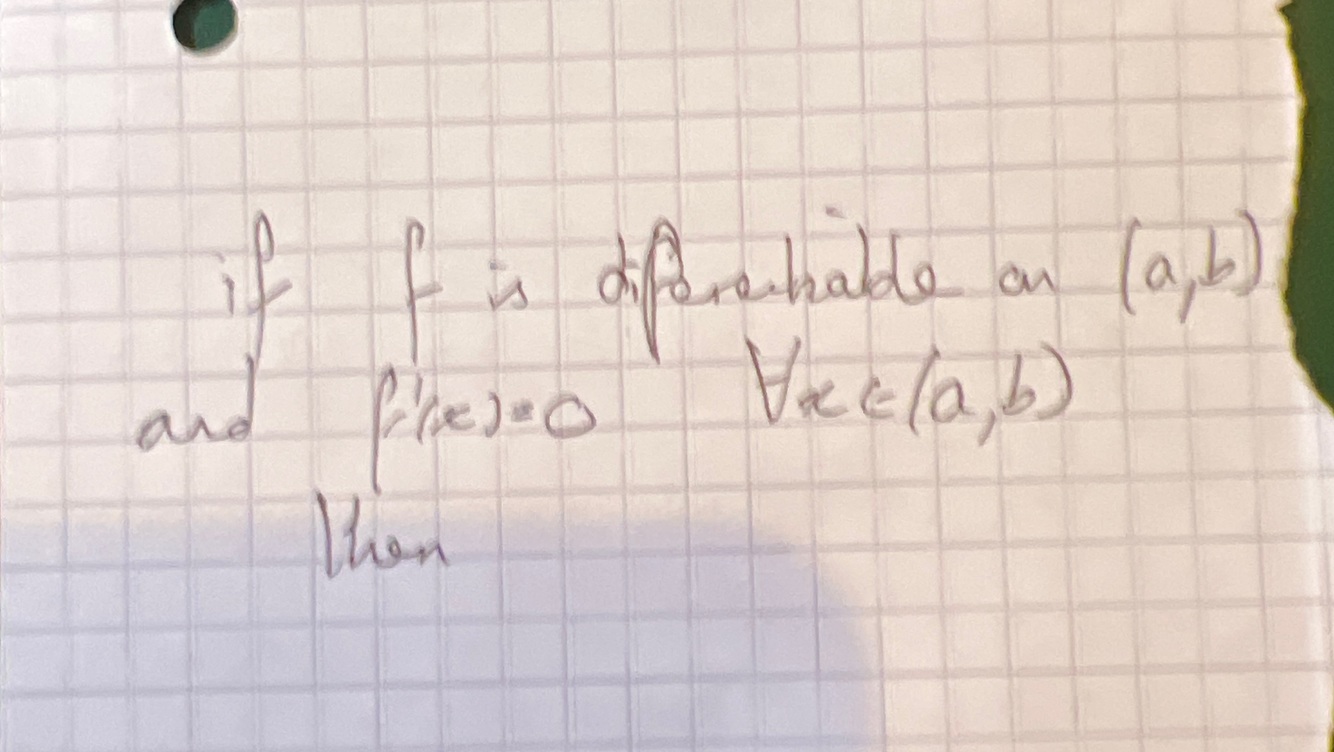 if f is diferentiable on (a,b)
and f'(x)=0 ∀x∈(a,b)
then